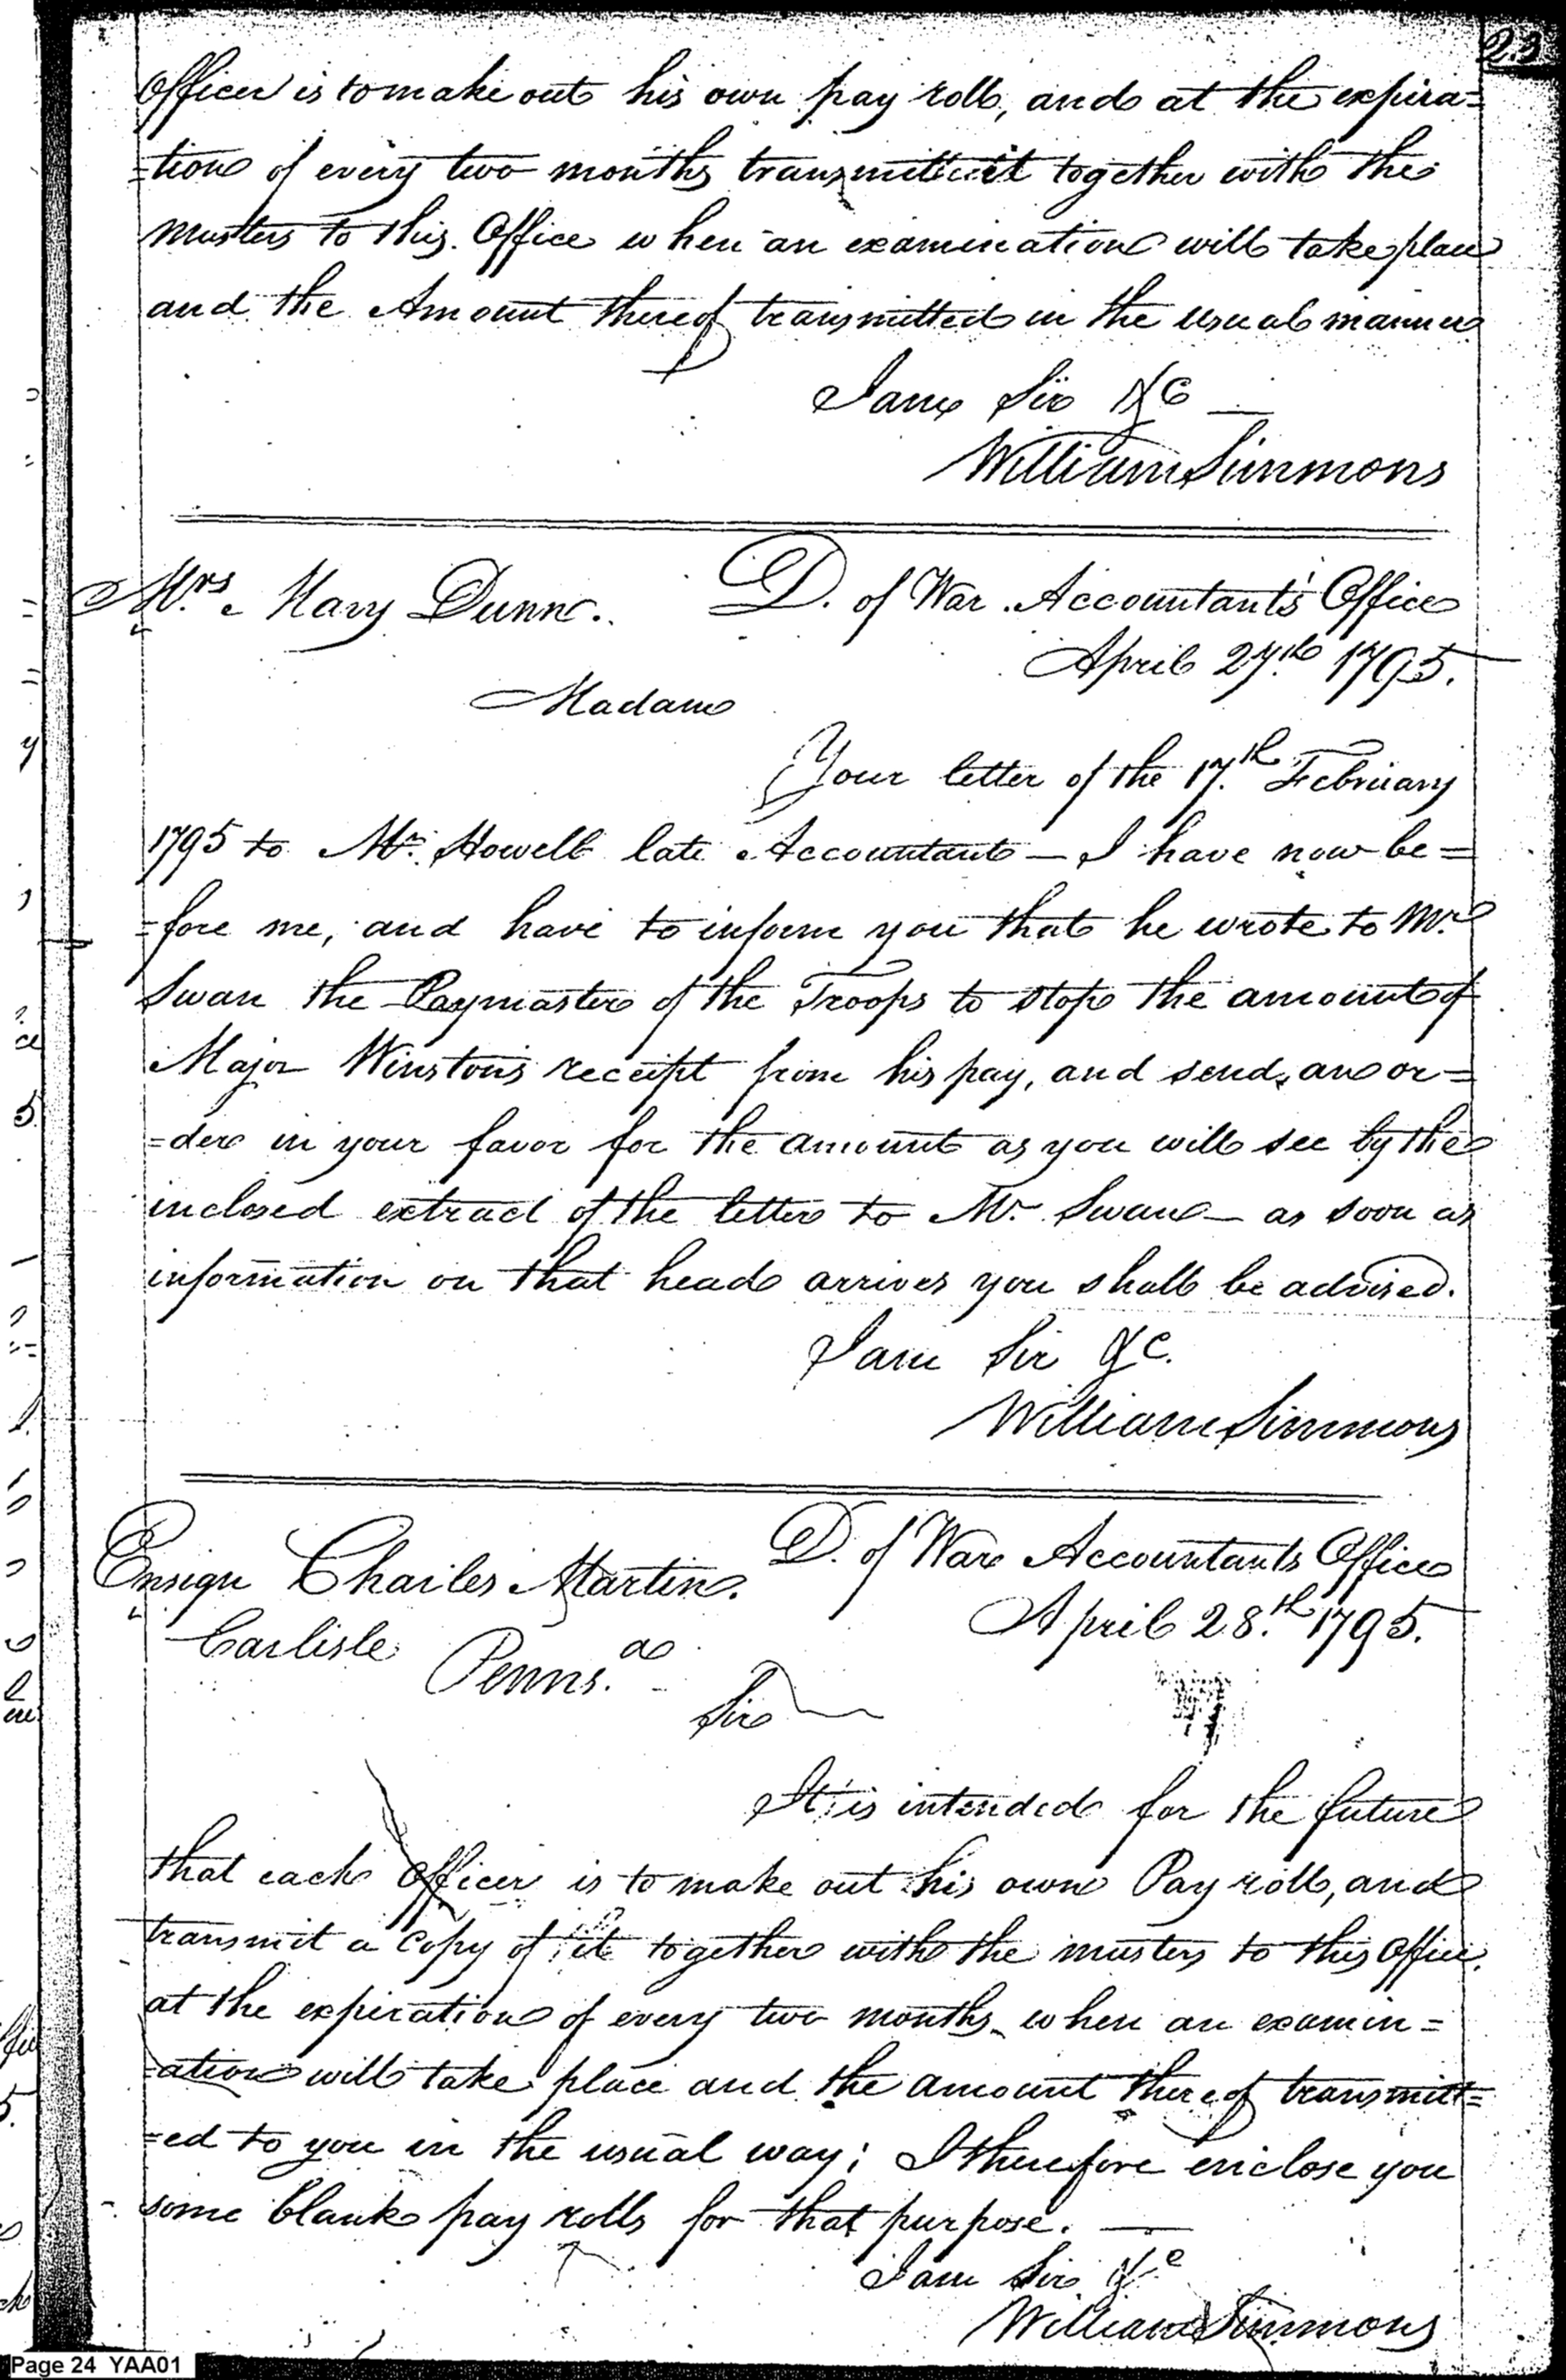 23
Officer is to make out his own pay roll, and at the expira=
=tion of every two months transmitt it together with the
musters to this Office when an examination will take place
and the Amount thereof transmitted in the usual manner
I am Sir &c
William Simmons
Mrs. Mary Dunn. D. of War Accountant's Office
April 27th 1795.
Madam
Your letter of the 17th February
1795 to Mr. Howell late Accountant — I have now be=
=fore me, and have to inform you that he wrote to Mr
Swan the Paymaster of the Troops to stop the amount of
Major Winston's receipt from his pay, and send an or=
=der in your favor for the amount as you will see by the
inclosed extract of the letter to Mr. Swan — as soon as
information on that head arrives you shall be advised.
I am Sir &c.
William Simmons
Ensign Charles Martin. D. of War Accountants Office
Carlisle April 28.th 1795.
Penns.a
Sir
It is intended for the future
that each Officer is to make out his own Pay roll, and
transmit a Copy of it together with the musters to this Office.
at the expiration of every two months when an examin=
=ation will take place and the amount thereof transmitt=
=ed to you in the usual way; I therefore enclose you
some blank pay rolls for that purpose. —
I am Sir &c
William Simmons
Page 24 YAA01